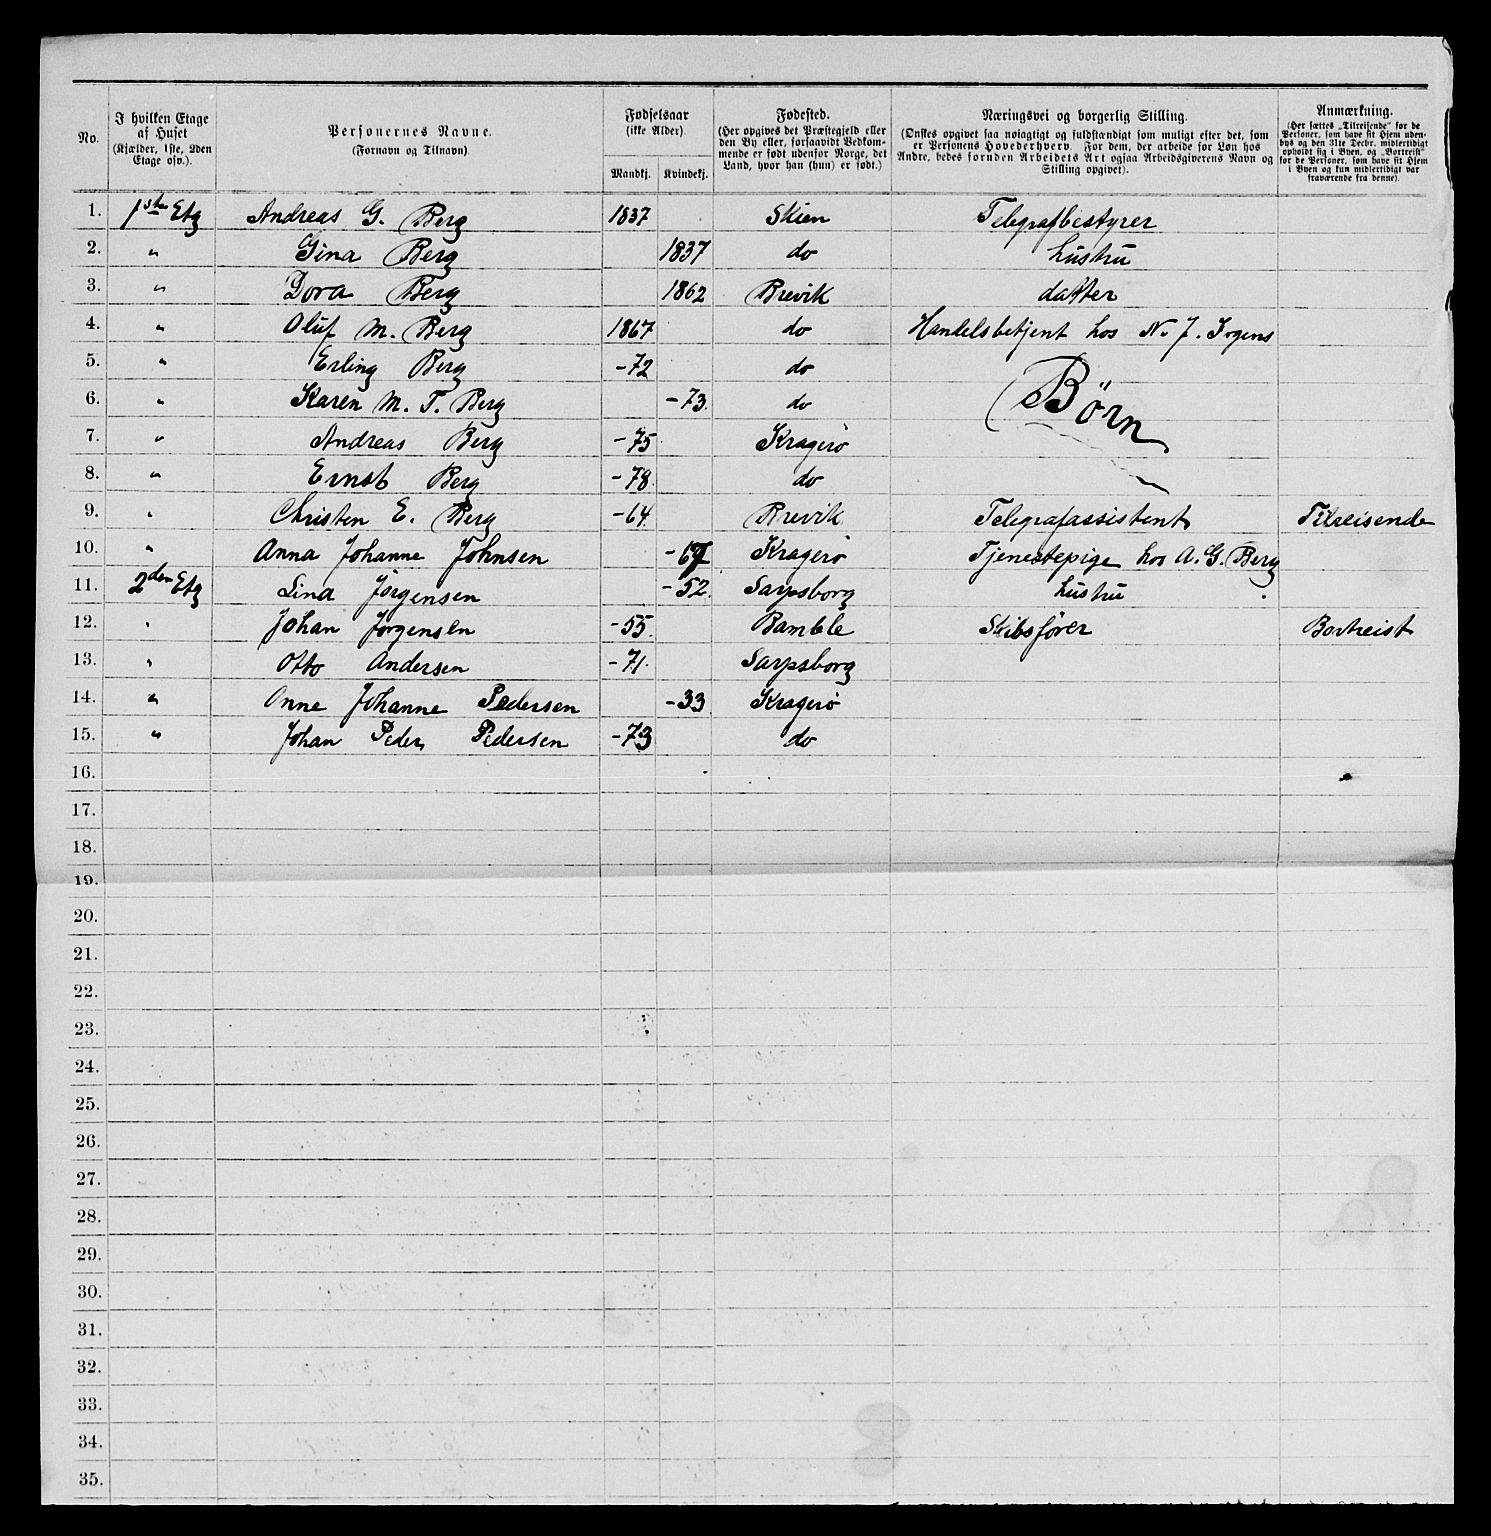 No.
I hvilken Etage af Huset (Kjælder, 1ste, 2den Etage osv.).
Personernes Navne. (Fornavn og Tilnavn).
Fødselsaar (ikke Alder). Mandkj. Kvindekj.
Fødested. (Her opgives det Præstegjeld eller den By eller, forsaavidt Vedkommende er født udenfor Norge, det Land, hvor han (hun) er født.)
Næringsvei og borgerlig Stilling. (Ønskes opgivet saa nøiagtigt og fuldstændigt som muligt efter det, som er Personens Hovederhverv. For dem, der arbeide for Løn hos Andre, bedes foruden Arbeidets Art ogsaa Arbeidsgiverens Navn og Stilling opgivet).
Anmærkning. (Her sættes „Tilreisende" for de Personer, som have sit Hjem udenbys og den 31te Decbr. midlertidigt opholdt sig i Byen, og „Bortreist" for de Personer, som have sit Hjem i Byen og kun midlertidigt var fraværende fra denne).
1. 1ste Etg Andreas G. Berg 1837 Skien Telegrafbestyrer
2. " Gina Berg 1837 do hustru
3. " Dora Berg 1862 Brevik datter
4. " Oluf M. Berg 1867 do Handelsbetjent hos N. J.
5. " Erling Berg -72 do
6. " Karen M. T. Berg -73. do Børn
7. " Andreas Berg -75 Kragerø
8. " Ernst Berg -78 do
9. " Christen E. Berg -64 Brevik Telegrafassistent Tilreisende
10. " Anna Johanne Johnsen -67 Kragerø Tjenestepige hos A. G. Berg
11. 2den Etg Lina Jørgensen -52. Sarpsborg hustru
12. " Johan Jørgensen -55. Bamble Skibsfører Bortreist
13. " Otto Andersen -71. Sarpsborg
14. " Anne Johanne Pedersen -33 Kragerø
15. " Johan Peder Pedersen -73 do
16.
17.
18.
19.
20.
21.
22.
23.
24.
25.
26.
27.
28.
29.
30.
31.
32.
33.
34.
35.